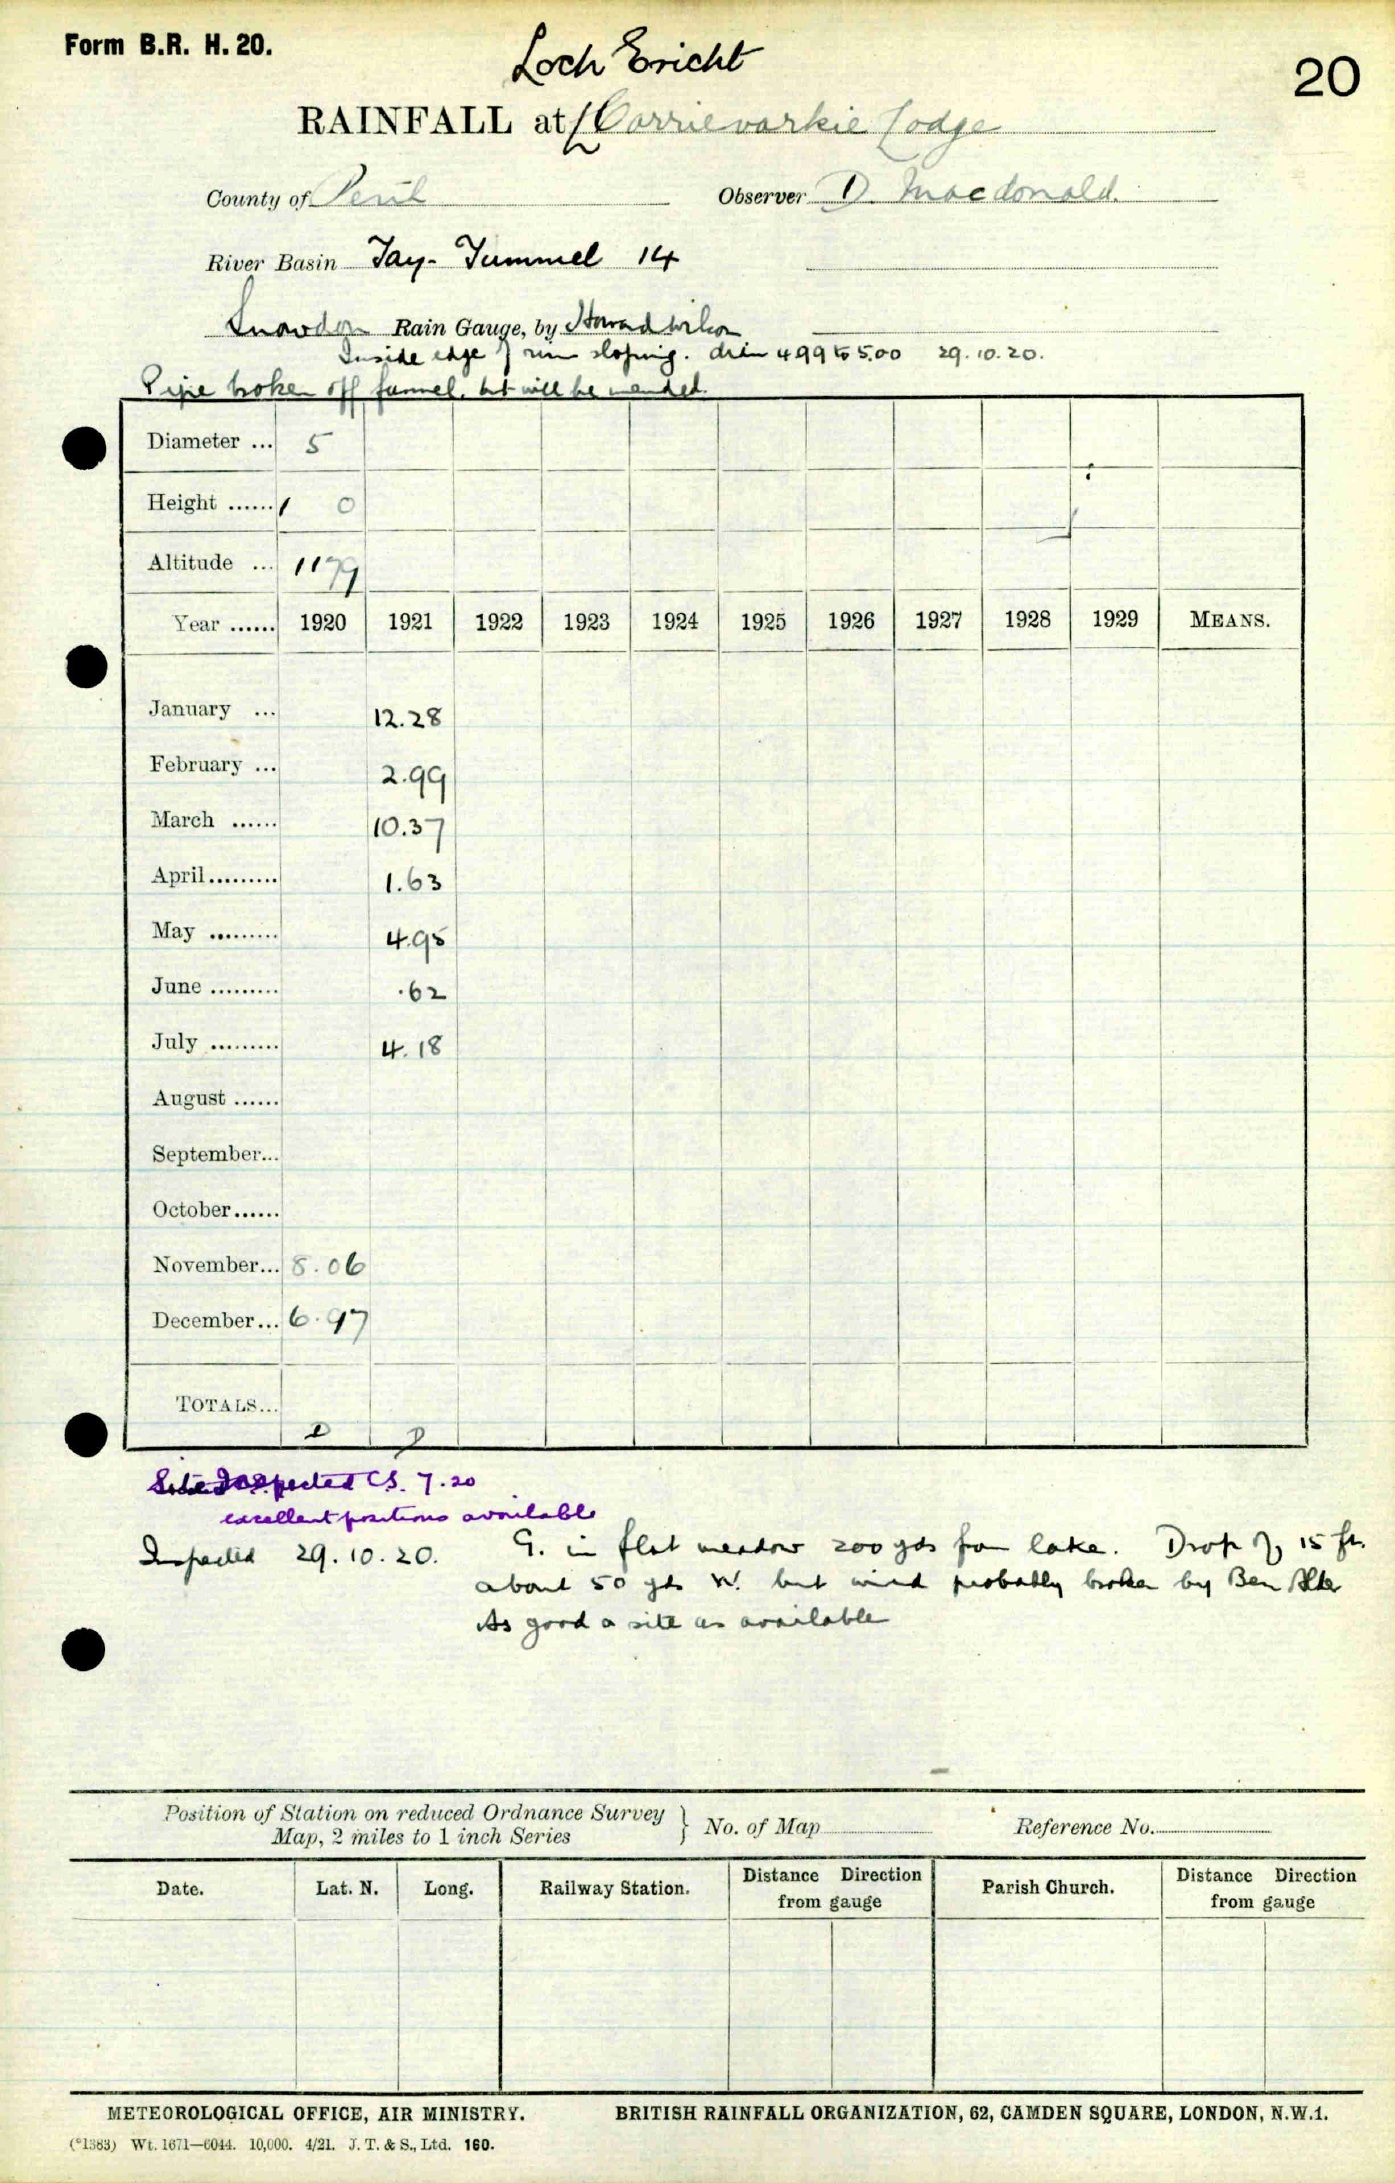 Form B.R. H. 20.
Loch Ericht
20
RAINFALL at Corrievarkie Lodge
County of Perth Observer D. Macdonald.
River Basin Tay-Tummel 14
Snowdon Rain Gauge, by Howard Wilson
Inside edge of rim sloping. diam 4.99 to 5.00 29.10.20.
Pipe broken off funnel, but will be mended.
Diameter ... 5
Height ...... 1 0
Altitude ... 1179
Year ...... 1920 1921 1922 1923 1924 1925 1926 1927 1928 1929 MEANS.
January ... 12.28
February ... 2.99
March ...... 10.37
April......... 1.63
May ......... 4.95
June ......... .62
July ......... 4.18
August ......
September...
October......
November... 8.06
December... 6.97
TOTALS...
D D
Site Inspected C.S. 7.20
excellent positions available
Inspected 29.10.20. G. in flat meadow 200 yds from lake. Drop of 15 ft.
about 50 yds W. but wind probably broken by Ben Alder
As good a site as available
Position of Station on reduced Ordnance Survey Map, 2 miles to 1 inch Series } No. of Map Reference No.
Date. Lat. N. Long. Railway Station. Distance Direction from gauge Parish Church. Distance Direction from gauge
METEOROLOGICAL OFFICE, AIR MINISTRY. BRITISH RAINFALL ORGANIZATION, 62, CAMDEN SQUARE, LONDON, N.W.1.
(*1383) Wt. 1671—6044. 10,000. 4/21. J. T. & S., Ltd. 160.